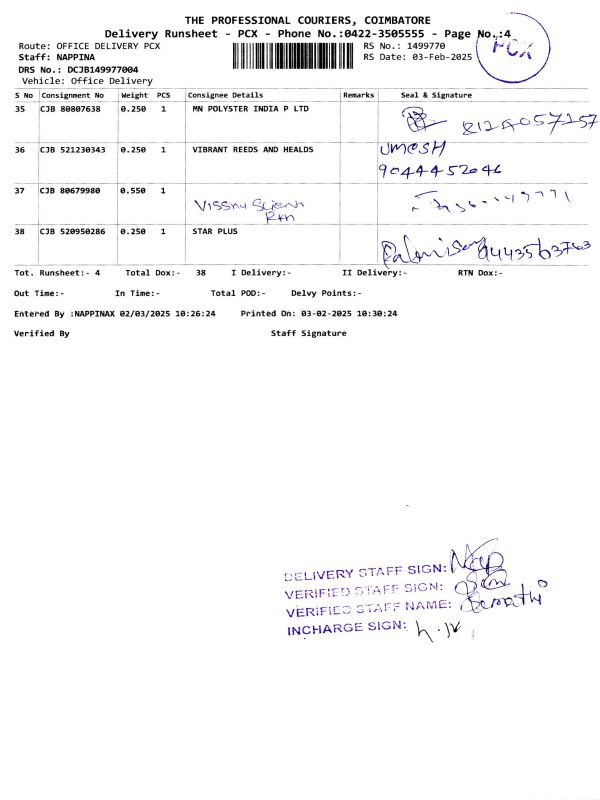 THE PROFESSIONAL COURIERS, COIMBATORE
Delivery Runsheet - PCX - Phone No.:0422-3505555 - Page No.:4
Route: OFFICE DELIVERY PCX RS No.: 1499770
Staff: NAPPINA RS Date: 03-Feb-2025
PCX
DRS No.: DCJB149977004
Vehicle: Office Delivery
S No Consignment No Weight PCS Consignee Details Remarks Seal & Signature
35 CJB 80807638 0.250 1 MN POLYSTER INDIA P LTD
36 CJB 521230343 0.250 1 VIBRANT REEDS AND HEALDS UMESH
9044452046
37 CJB 80679980 0.550 1
38 CJB 520950286 0.250 1 STAR PLUS
Tot. Runsheet:- 4 Total Dox:- 38 I Delivery:- II Delivery:- RTN Dox:-
Out Time:- In Time:- Total POD:- Delvy Points:-
Entered By :NAPPINAX 02/03/2025 10:26:24 Printed On: 03-02-2025 10:30:24
Verified By Staff Signature
DELIVERY STAFF SIGN:
VERIFIED STAFF SIGN:
VERIFIED STAFF NAME:
INCHARGE SIGN: